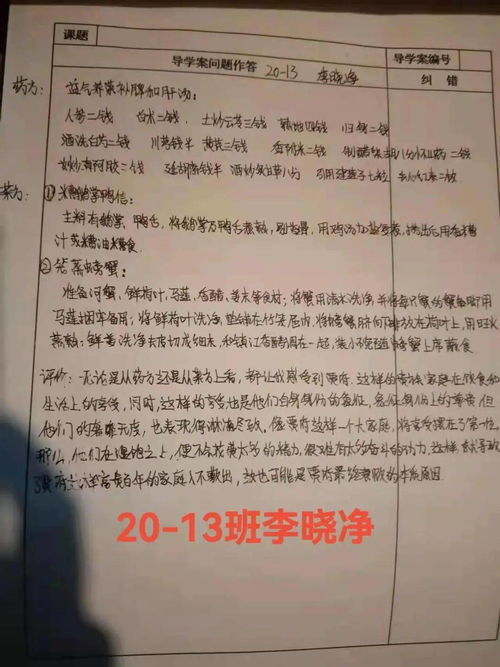 课题
导学案问题作答 20-13 李晓净 导学案编号
纠错
药方: 益气养荣补脾和肝汤:
人参二钱 白术二钱 土炒云苓三钱 熟地四钱 归身二钱
酒洗白芍二钱 川芎钱半 黄芪三钱 香附米二钱 制醋柴胡八分怀山药二钱
炒阿胶二钱 延胡索钱半 酒炒炙甘草八分 引用建莲子七粒 红枣二枚
菜方: ①糟鹅掌鸭信:
主料有鹅掌,鸭舌,将鹅掌
汁或糟油糟食.
②笼蒸螃蟹:
准备河蟹,鲜荷叶,马莲,香醋,姜末等食材;将蟹用清水洗净,并将每只蟹的蟹
马莲捆牢备用;将鲜荷叶洗净,垫铺在竹笼屉内,将螃蟹脐向下排放在荷叶上,用旺火
蒸熟;鲜姜洗净去皮切成细末,和镇江香醋调在一起,装小碗随螃蟹上席蘸食
评价:无论是从药方还是从菜方上看,都让我感受到贾府,这样的贵族家庭在饮食和
生活上的奢侈,同时,这样的奢侈也是他们自身身份的象征,象征身份上的尊贵.但
他们的奢靡无度,也表现得淋漓尽致,像贾府这样一个大家庭,将享受摆在了第一位
那么,他们在之上,便不会花费太多的精力,很难有太多奋斗的动力,这样,就导致
了贾府这富贵百年的家庭入不敷出,这也可能是贾府最终衰败的本质原因.
20-13班李晓净